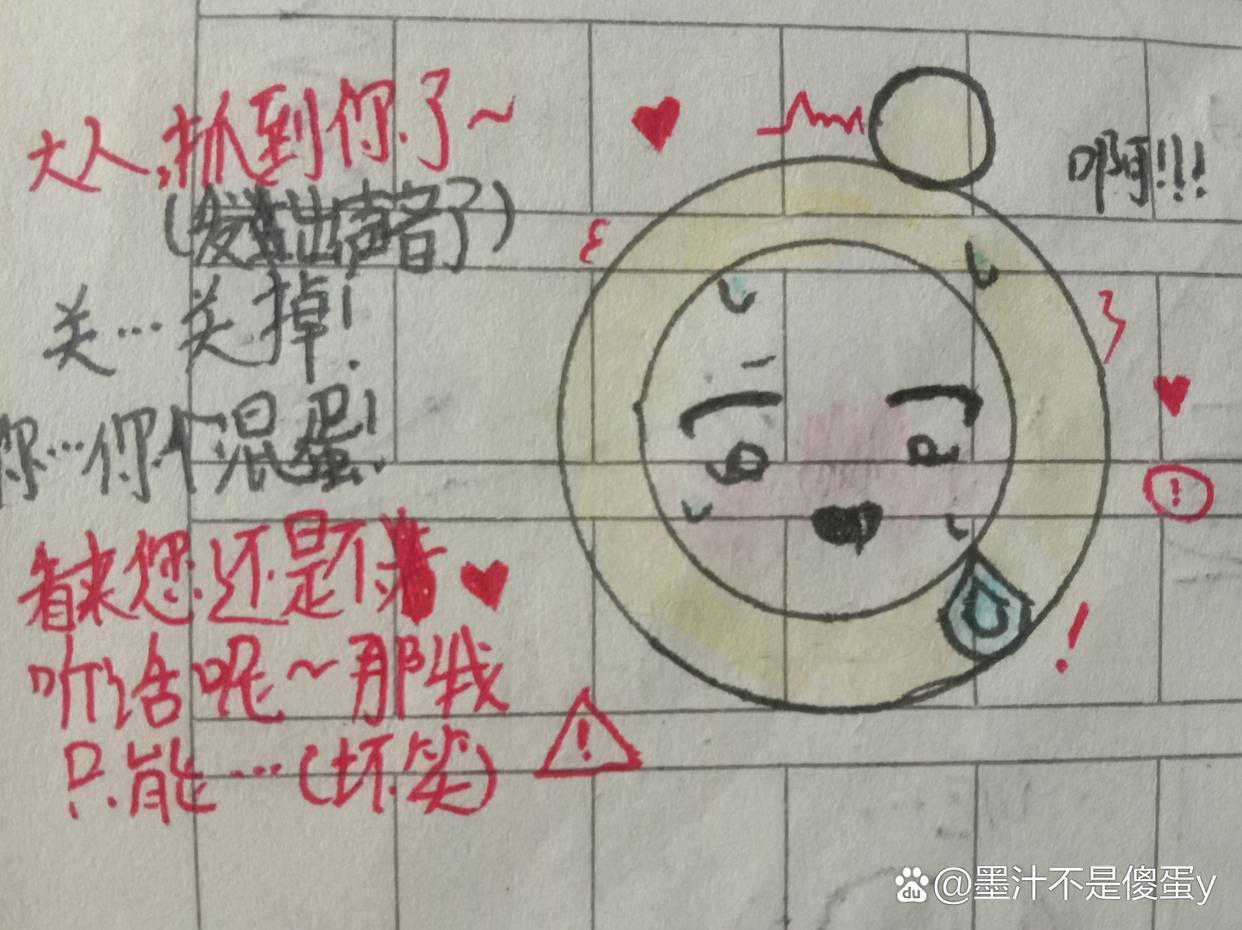 大人,抓到你了~
啊!!!
(发出声音了)
关…关掉!
你…你个混蛋!
看来您还是不
听话呢~那我
只能…(坏笑)
!
!
!
du @墨汁不是傻蛋y